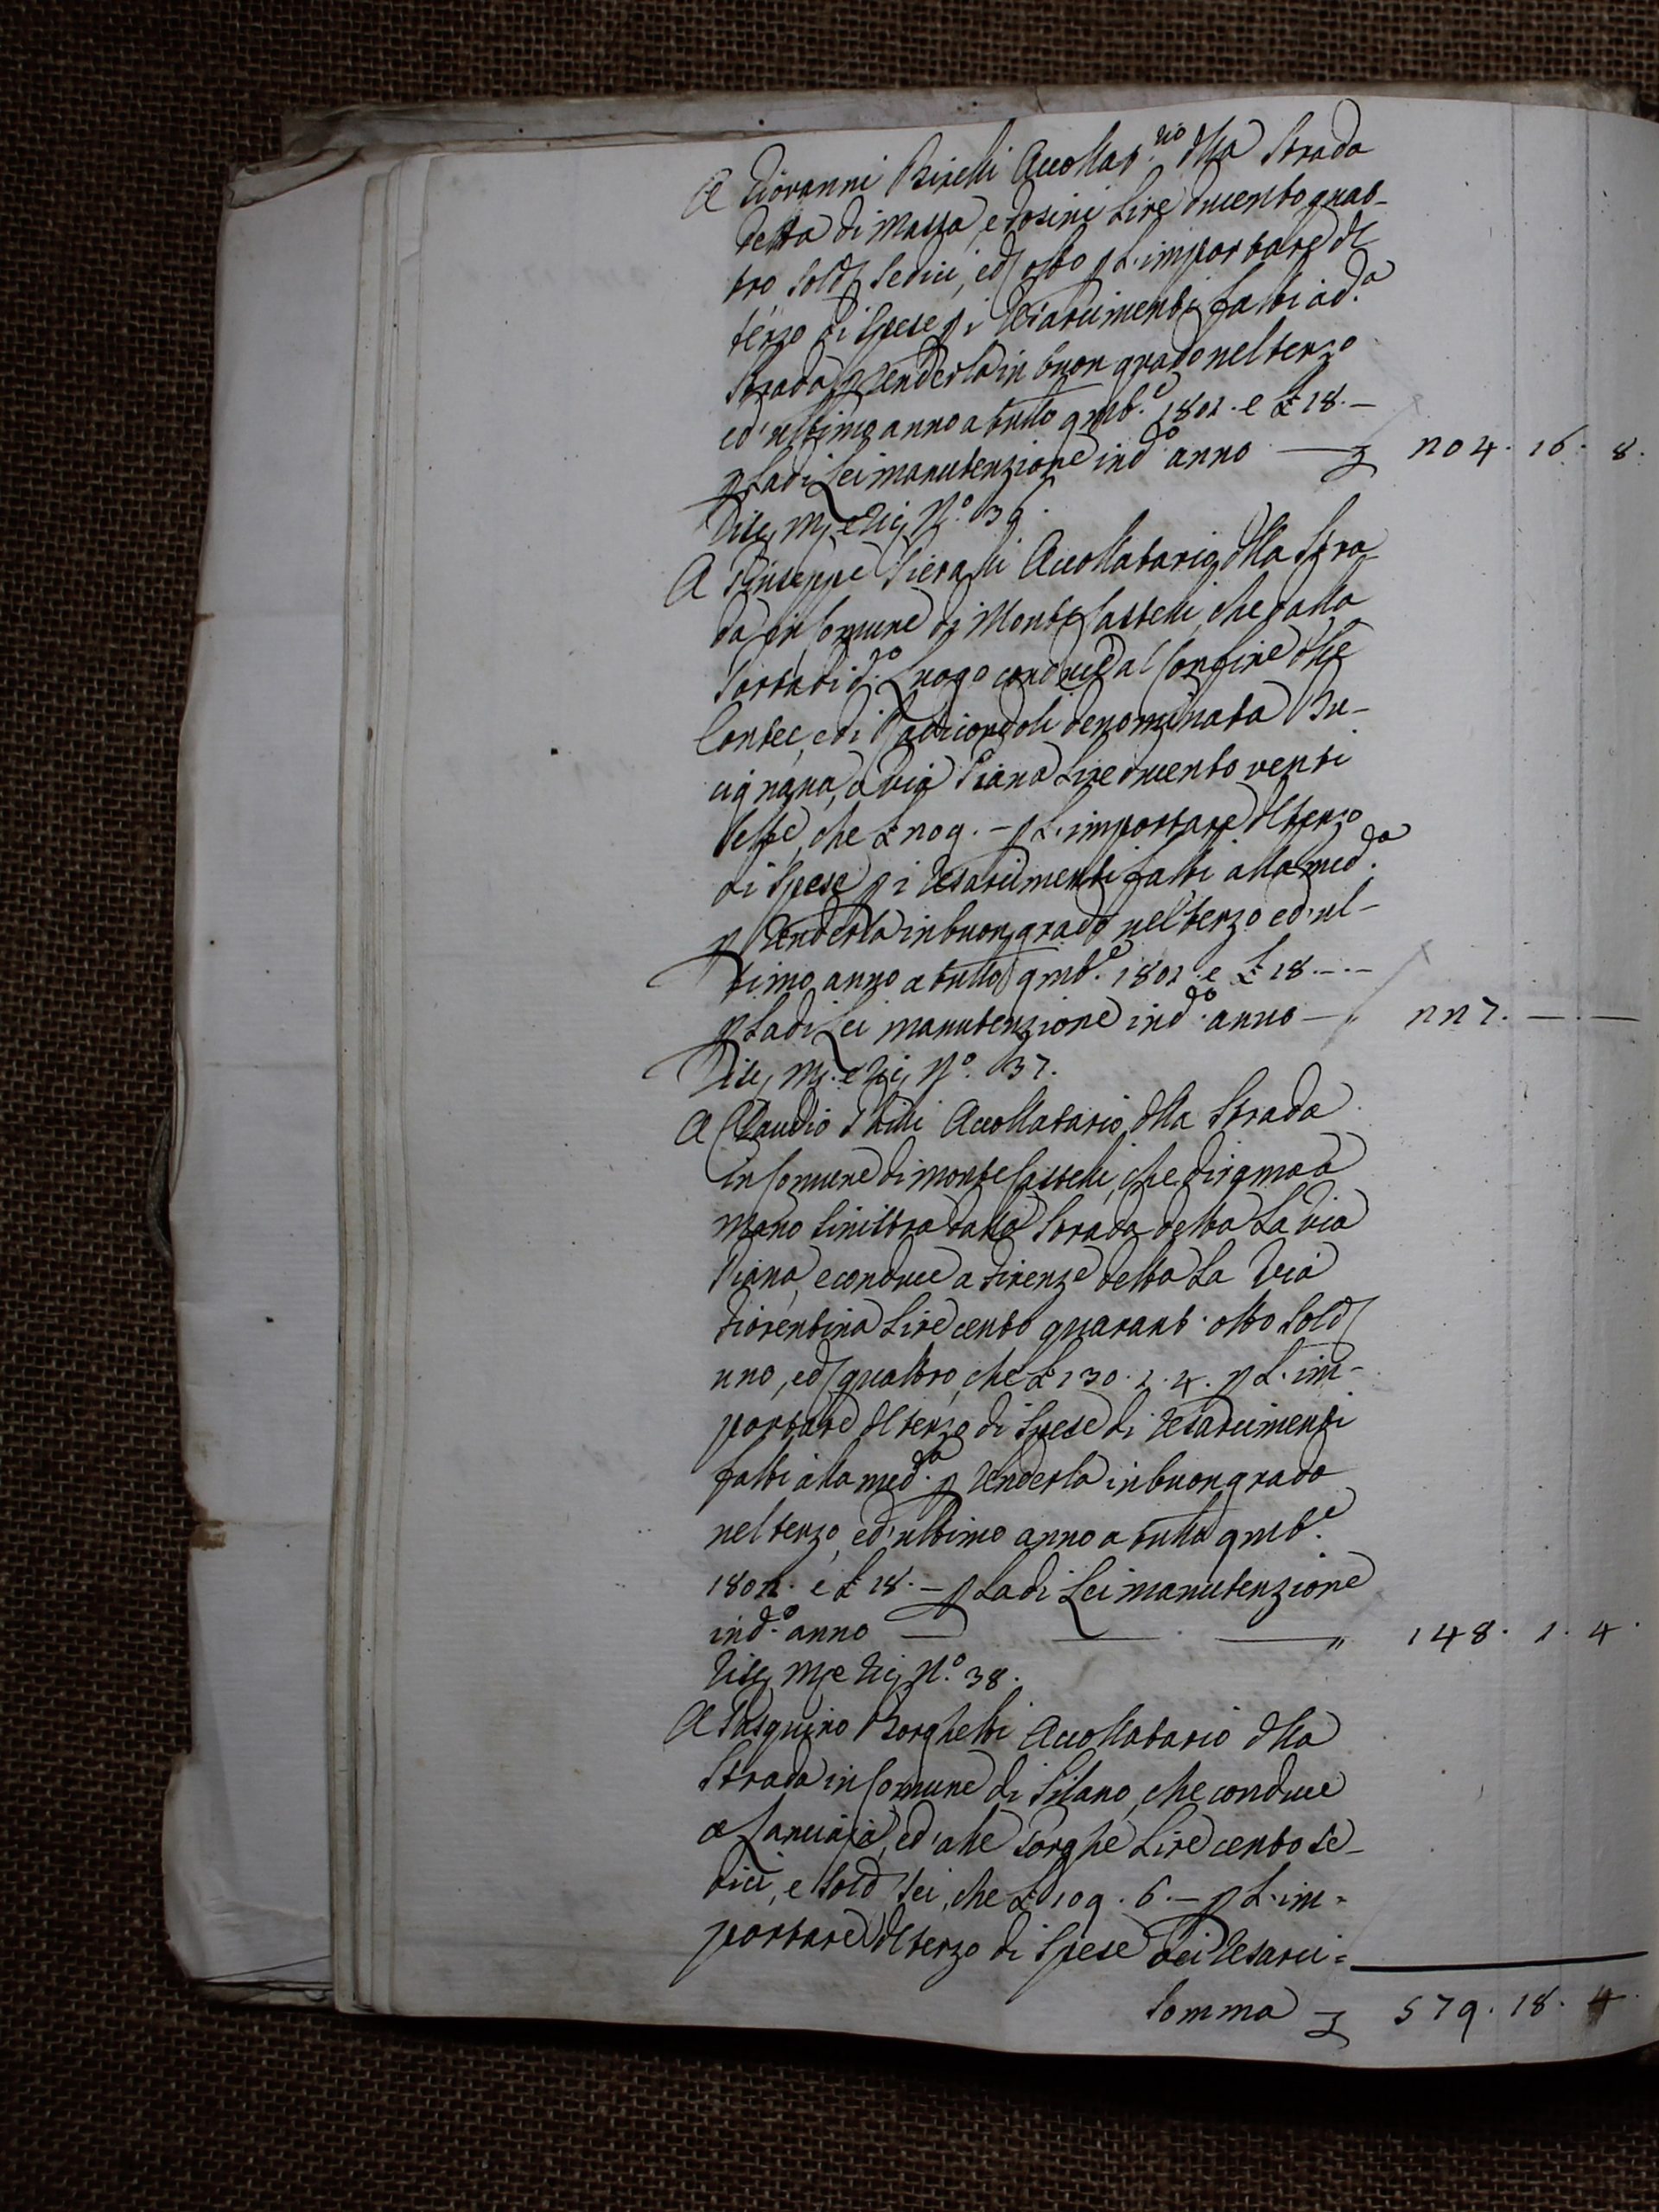 A Giovanni Birelli Accollat.rio dlla Strada
detta di Massa, e Cosini Lire ducento quat-
tro, Sold. Sedici, e d otto p L'importare dl
terzo di Spese p i Resarcimenti fatti a d.a
Strada p Renderla in buon grado nel terzo
ed'ultimo anno a tutto 9mb.e 1802. e £ 18. —
p La di Lei manutenzione in d.o anno — £ 204. 16. 8.
N.o 36.
A Giuseppe Pieralli Accollatario dlla Stra
da in Comune di Monte Castelli, che dalla
Porta di d.o Luogo conduce al Confine dlle
e di Radicondoli denominata Bu-
cignana, o via Piana Lire ducento venti
Sette, che £ 209. — p L'importare dl terzo
di Spese p i Resarcimenti fatti alla med.a
p Renderla in buon grado nel terzo ed'ul-
timo anno a tutto 9mb.e 1802. e £ 18. — . —
p La di Lei manutenzione in d.o anno — " 227. — . —
N.o 37.
A Claudio Accollatario dlla Strada
in Comune di Monte Castelli, che dirama a
mano Sinistra dalla Strada detta La via
Piana, e conduce a Firenze detta La Via
Fiorentina Lire cento quarant'otto Sold.
uno, e d quattro, che £ 130. 1. 4. p L'im-
portare dl terzo di Spese di Resarcimenti
fatti alla med.a p Renderla in buon grado
nel terzo, ed'ultimo anno a tutto 9mb.e
1802. e £ 18. — p La di Lei manutenzione
in d.o anno — — — " 148. 1. 4.
N.o 38.
A Pasquino Borghetti Accollatario dlla
Strada in Comune di Silano, che conduce
a Lanciaja, ed'alle Lire cento se-
dici, e Sold. Sei, che £ 109. 6. — p L'im=
portare dl terzo di Spese dei Resarci=
Somma £ 579. 18. 4.